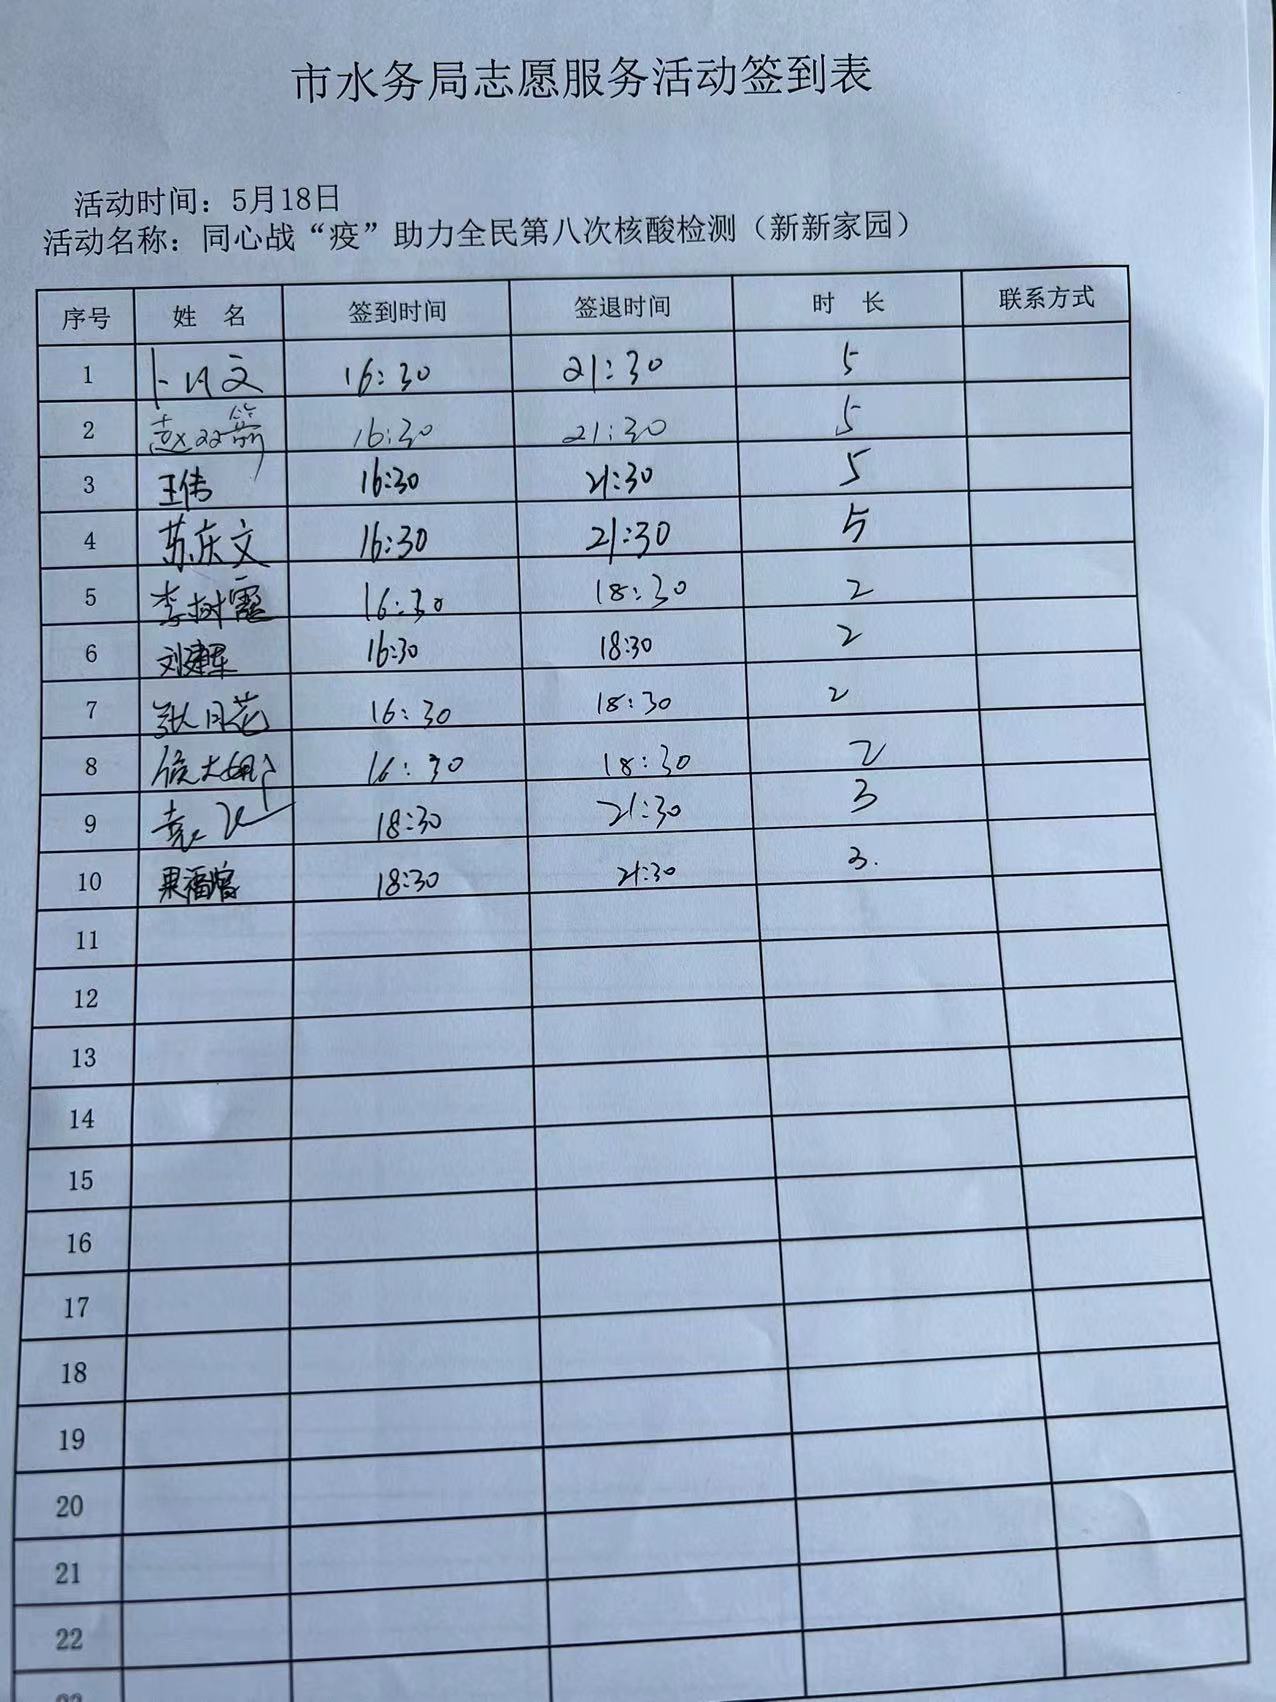 市水务局志愿服务活动签到表
活动时间：5月18日
活动名称：同心战“疫”助力全民第八次核酸检测（新新家园）
序号 姓 名 签到时间 签退时间 时 长 联系方式
1 16:30 21:30 5
2 赵双箭 16:30 21:30 5
3 王伟 16:30 21:30 5
4 苏庆文 16:30 21:30 5
5 李树霞 16:30 18:30 2
6 刘建军 16:30 18:30 2
7 张月花 16:30 18:30 2
8 16:30 18:30 2
9 袁飞 18:30 21:30 3
10 18:30 21:30 3.
11
12
13
14
15
16
17
18
19
20
21
22